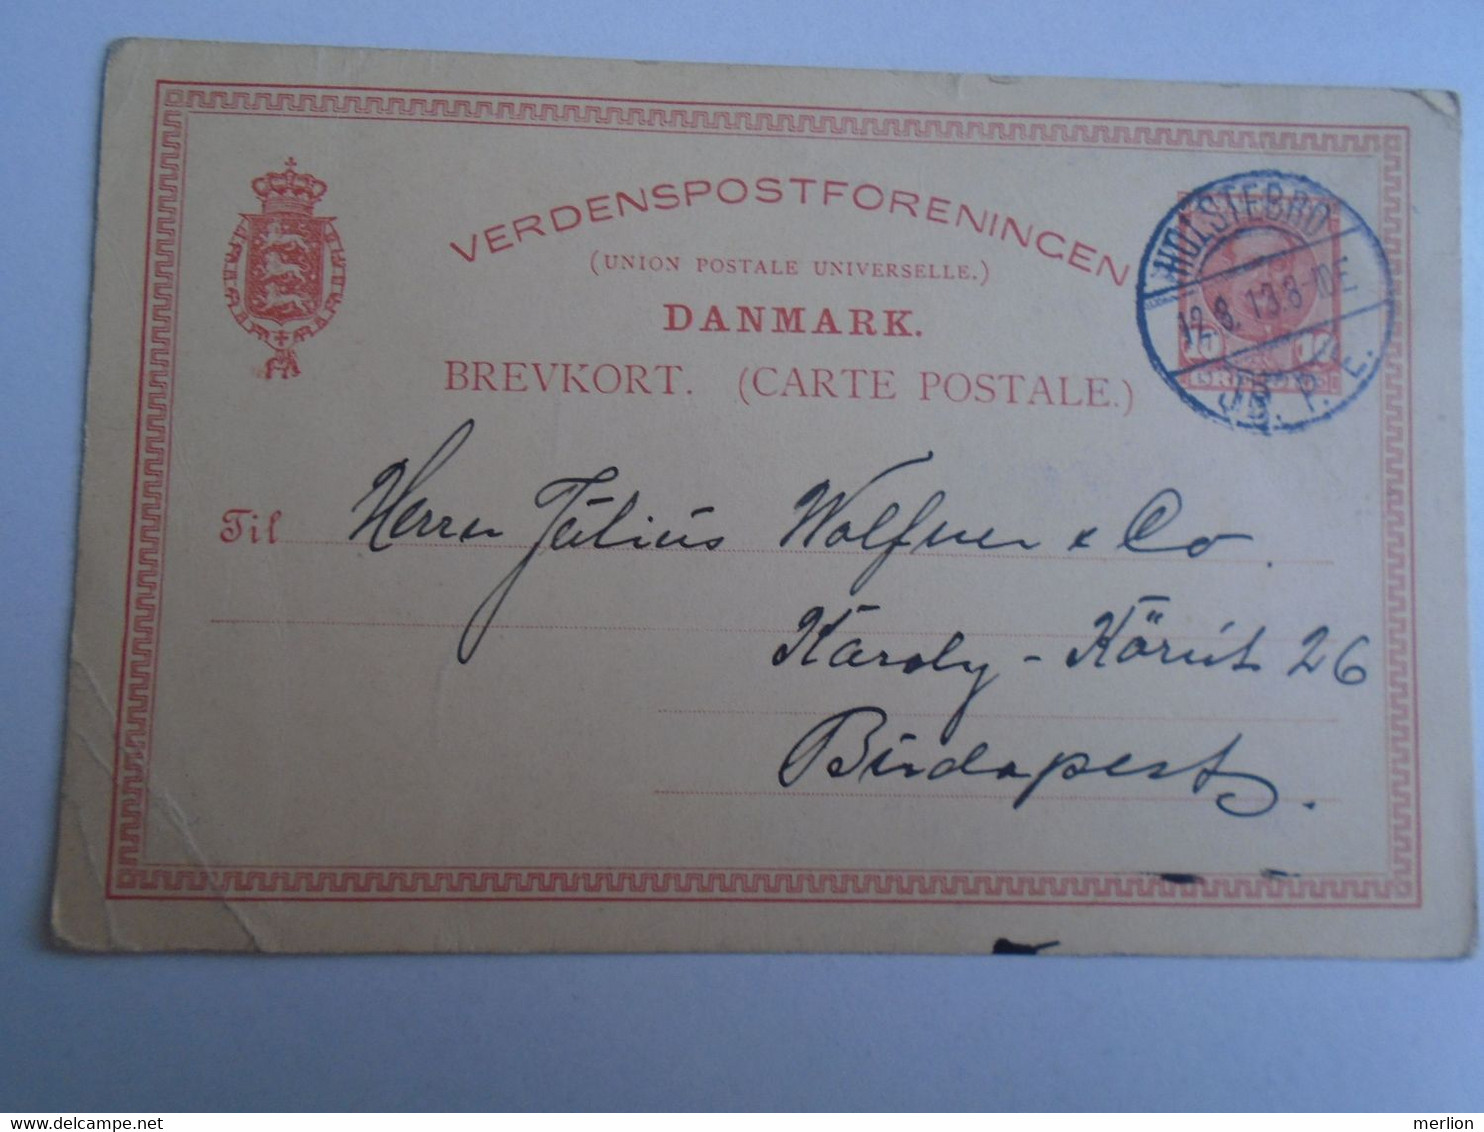 VERDENSPOSTFORENINGEN
(UNION POSTALE UNIVERSELLE.)
DANMARK.
BREVKORT. (CARTE POSTALE.)
HOLSTEBRO
12.8.13.8-10E
JB. P. E.
10 10
Til Herrn Július Wolfner & Co.
Karoly - Körút 26
Büdapest.
merlion